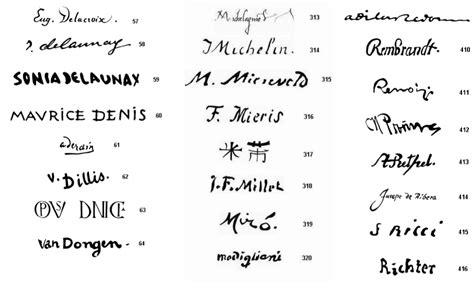 Eug. Delacroix. 57
delaunay 58
SONIA DELAUNAY 59
MAVRICE DENIS 60
a derain 61
V. Dillis. 62
63
van Dongen. 64
313
J Michelin. 314
M. Miereveld 315
F. Mieris 316
米 芾 317
J. F. Millet 318
Miró. 319
modigliani 320
Rembrandt. 410
Renoir. 411
412
A Rethel. 413
Jusepe de Ribera 414
S RICCI 415
Richter 416